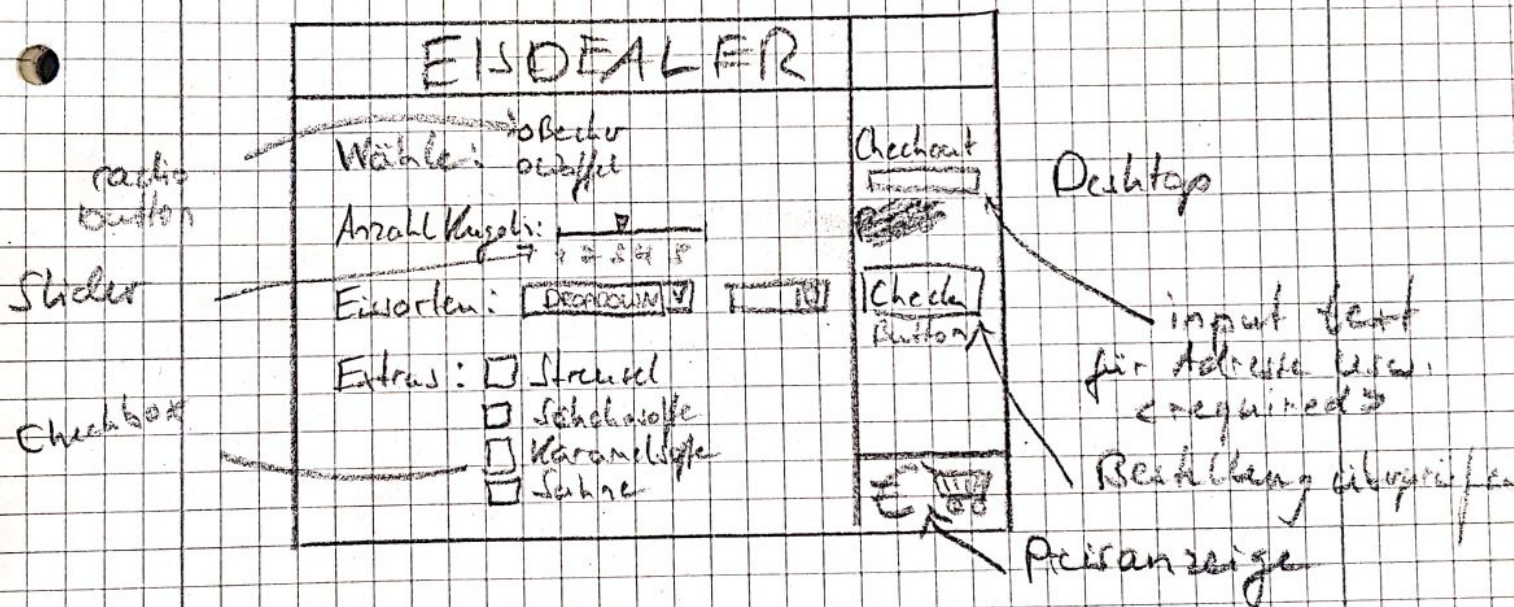 EISDEALER
radio
button
Wähle: o Becher
o Waffel
Anzahl Kugeln:
1 2 3 4 5
Slider
Eissorten: DROPDOWN
Extras: Streusel
Schokosoße
Karamelsoße
Sahne
Checkbox
Checkout
Check
Button
€
Desktop
input text
für Adresse usw.
<required>
Bestellung überprüfen
Preisanzeige